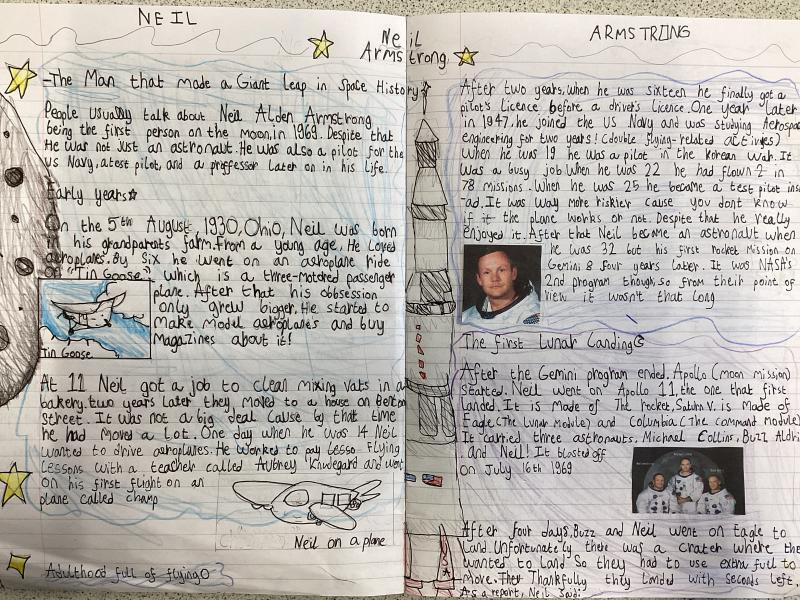 NEIL
Neil
Armstrong
-The Man that made a Giant Leap in Space History
People usually talk about Neil Alden Armstrong
being the first person on the moon, in 1969. Despite that
He was not just an astronaut. He was also a pilot for the
us Navy, atest pilot, and a proffessor later on in his life.
Early years
On the 5th August, 1930, Ohio, Neil was born
in his grandparents farm. from a young age, He loved
aeroplanes. By six he went on an aeroplane ride
"Tin Goose" which is a three-motored passenger
plane. After that his obbsession
only grew bigger. He started to
Make model aeroplanes and buy
Magazines about it!
Tin Goose
At 11 Neil got a job to clean mixing vats in a
bakery. two years later they moved to a house on
street. It was not a big deal Cause by that time
he had moved a lot. One day when he was 14 Neil
wanted to drive aeroplanes. He Worked to pay flying
Lessons with a teacher called and went
on his first flight on an
plane called champ
Neil on a plane
Adulthood full of flying
ARMSTRONG
After two years, when he was sixteen he finally got a
pilot's Licence before a driver's Licence. One year later
in 1947, he joined the US Navy and was studying
engineering for two years! (double flying-related activies)
When he was 19 he was a pilot in the Korean War. It
was a busy job When he was 22 he had flown in
78 missions. When he was 25 he became a test pilot ins
ad. It was way more riskier cause you dont know
if it the plane works or not. Despite that he really
enjoyed it. After that Neil became an astronaut when
he was 32 but his first rocket Mission on
Gemini 8 four years later. It was NASA's
2nd program though, so from their point of
view it wasn't that long
The first Lunar Landing
After the Gemini program ended, Apollo (moon mission)
Started. Neil went on Apollo 11, the one that first
landed. It is made of The rocket, Saturn V. is made of
Eagle, (The Lunar Module) and Columbia (The command module)
It carried three astronauts, Michael Collins, Buzz Aldri
and Neil! It blasted off
on July 16th 1969
After four days, Buzz and Neil went on Eagle to
Land. Unfortunately there was a crater where the
wanted to land So they had to use extra fuel to
Move. Thankfully they landed with seconds left.
As a report, Neil Said: